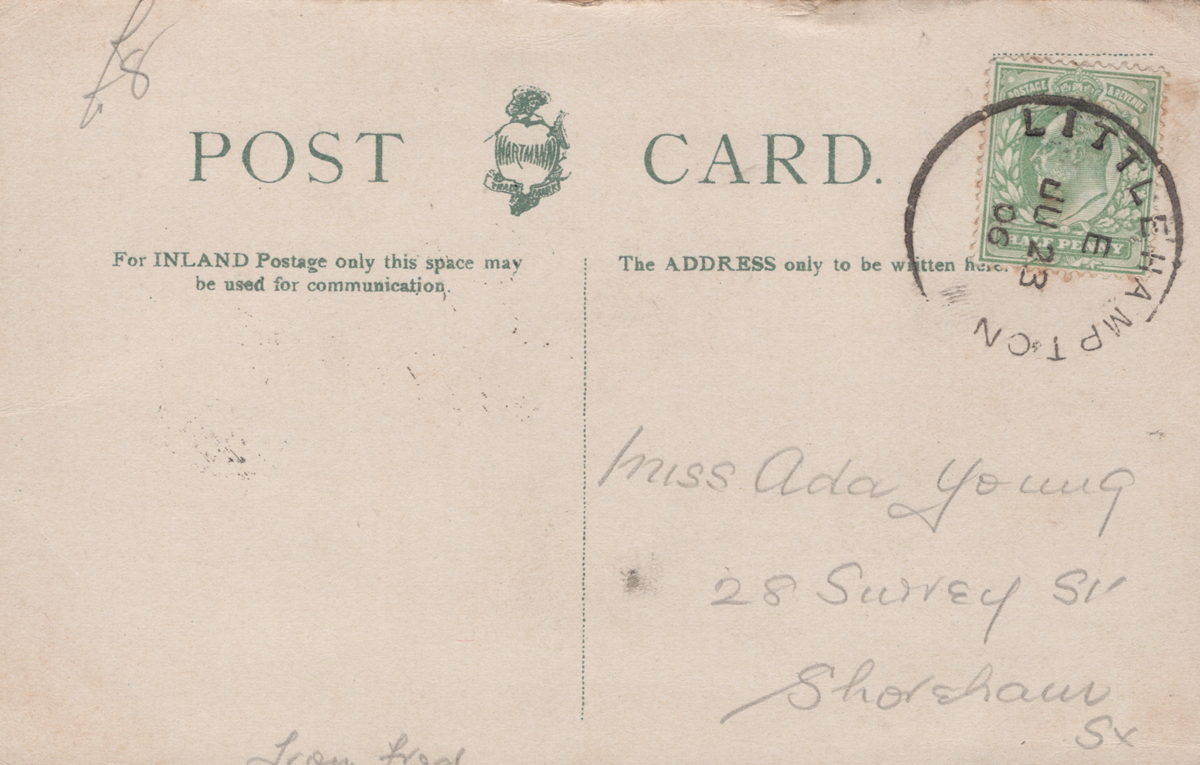 £8
POST CARD.
HARTMANN
TRADE MARK
For INLAND Postage only this space may
be used for communication.
The ADDRESS only to be written here.
POSTAGE & REVENUE
HALFPENNY
LITTLEHAMPTON
E
JU 23
06
Miss Ada Young
28 Surrey St
Shoreham
Sx
From Fred